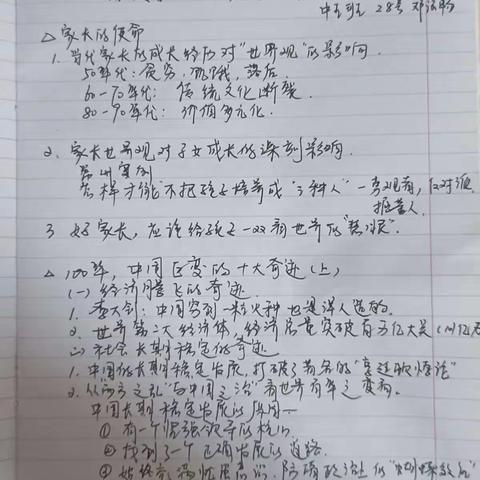 中五班 28号 邓
△家长的使命
1. 当代家长的成长经历对"世界观"的影响.
50年代: 贫穷, 饥饿, 落后.
60-70年代: 传统文化断裂.
80-90年代: 价值多元化.
2. 家长世界观对子女成长的深刻影响.
案例
怎样才能"不把孩子培养成"三种人"一旁观者,
3 好家长, 应该给孩子一双看世界的"慧眼".
△100年, 中国巨变的十大奇迹(上)
(一)经济腾飞的奇迹.
1. 李大钊: 中国穷到一粒火种也是洋人造的.
2. 世界第二大经济体, 经济总量突破百万亿大关
(二)社会长期稳定的奇迹
1. 中国的长期稳定发展, 打破了著名的"亨廷顿悖论"
2. 从"西方之乱"与"中国之治"看世界百年之变局.
中国长期稳定发展的原因一
①有一个坚强领导的核心.
②找到了一个正确发展的道路.